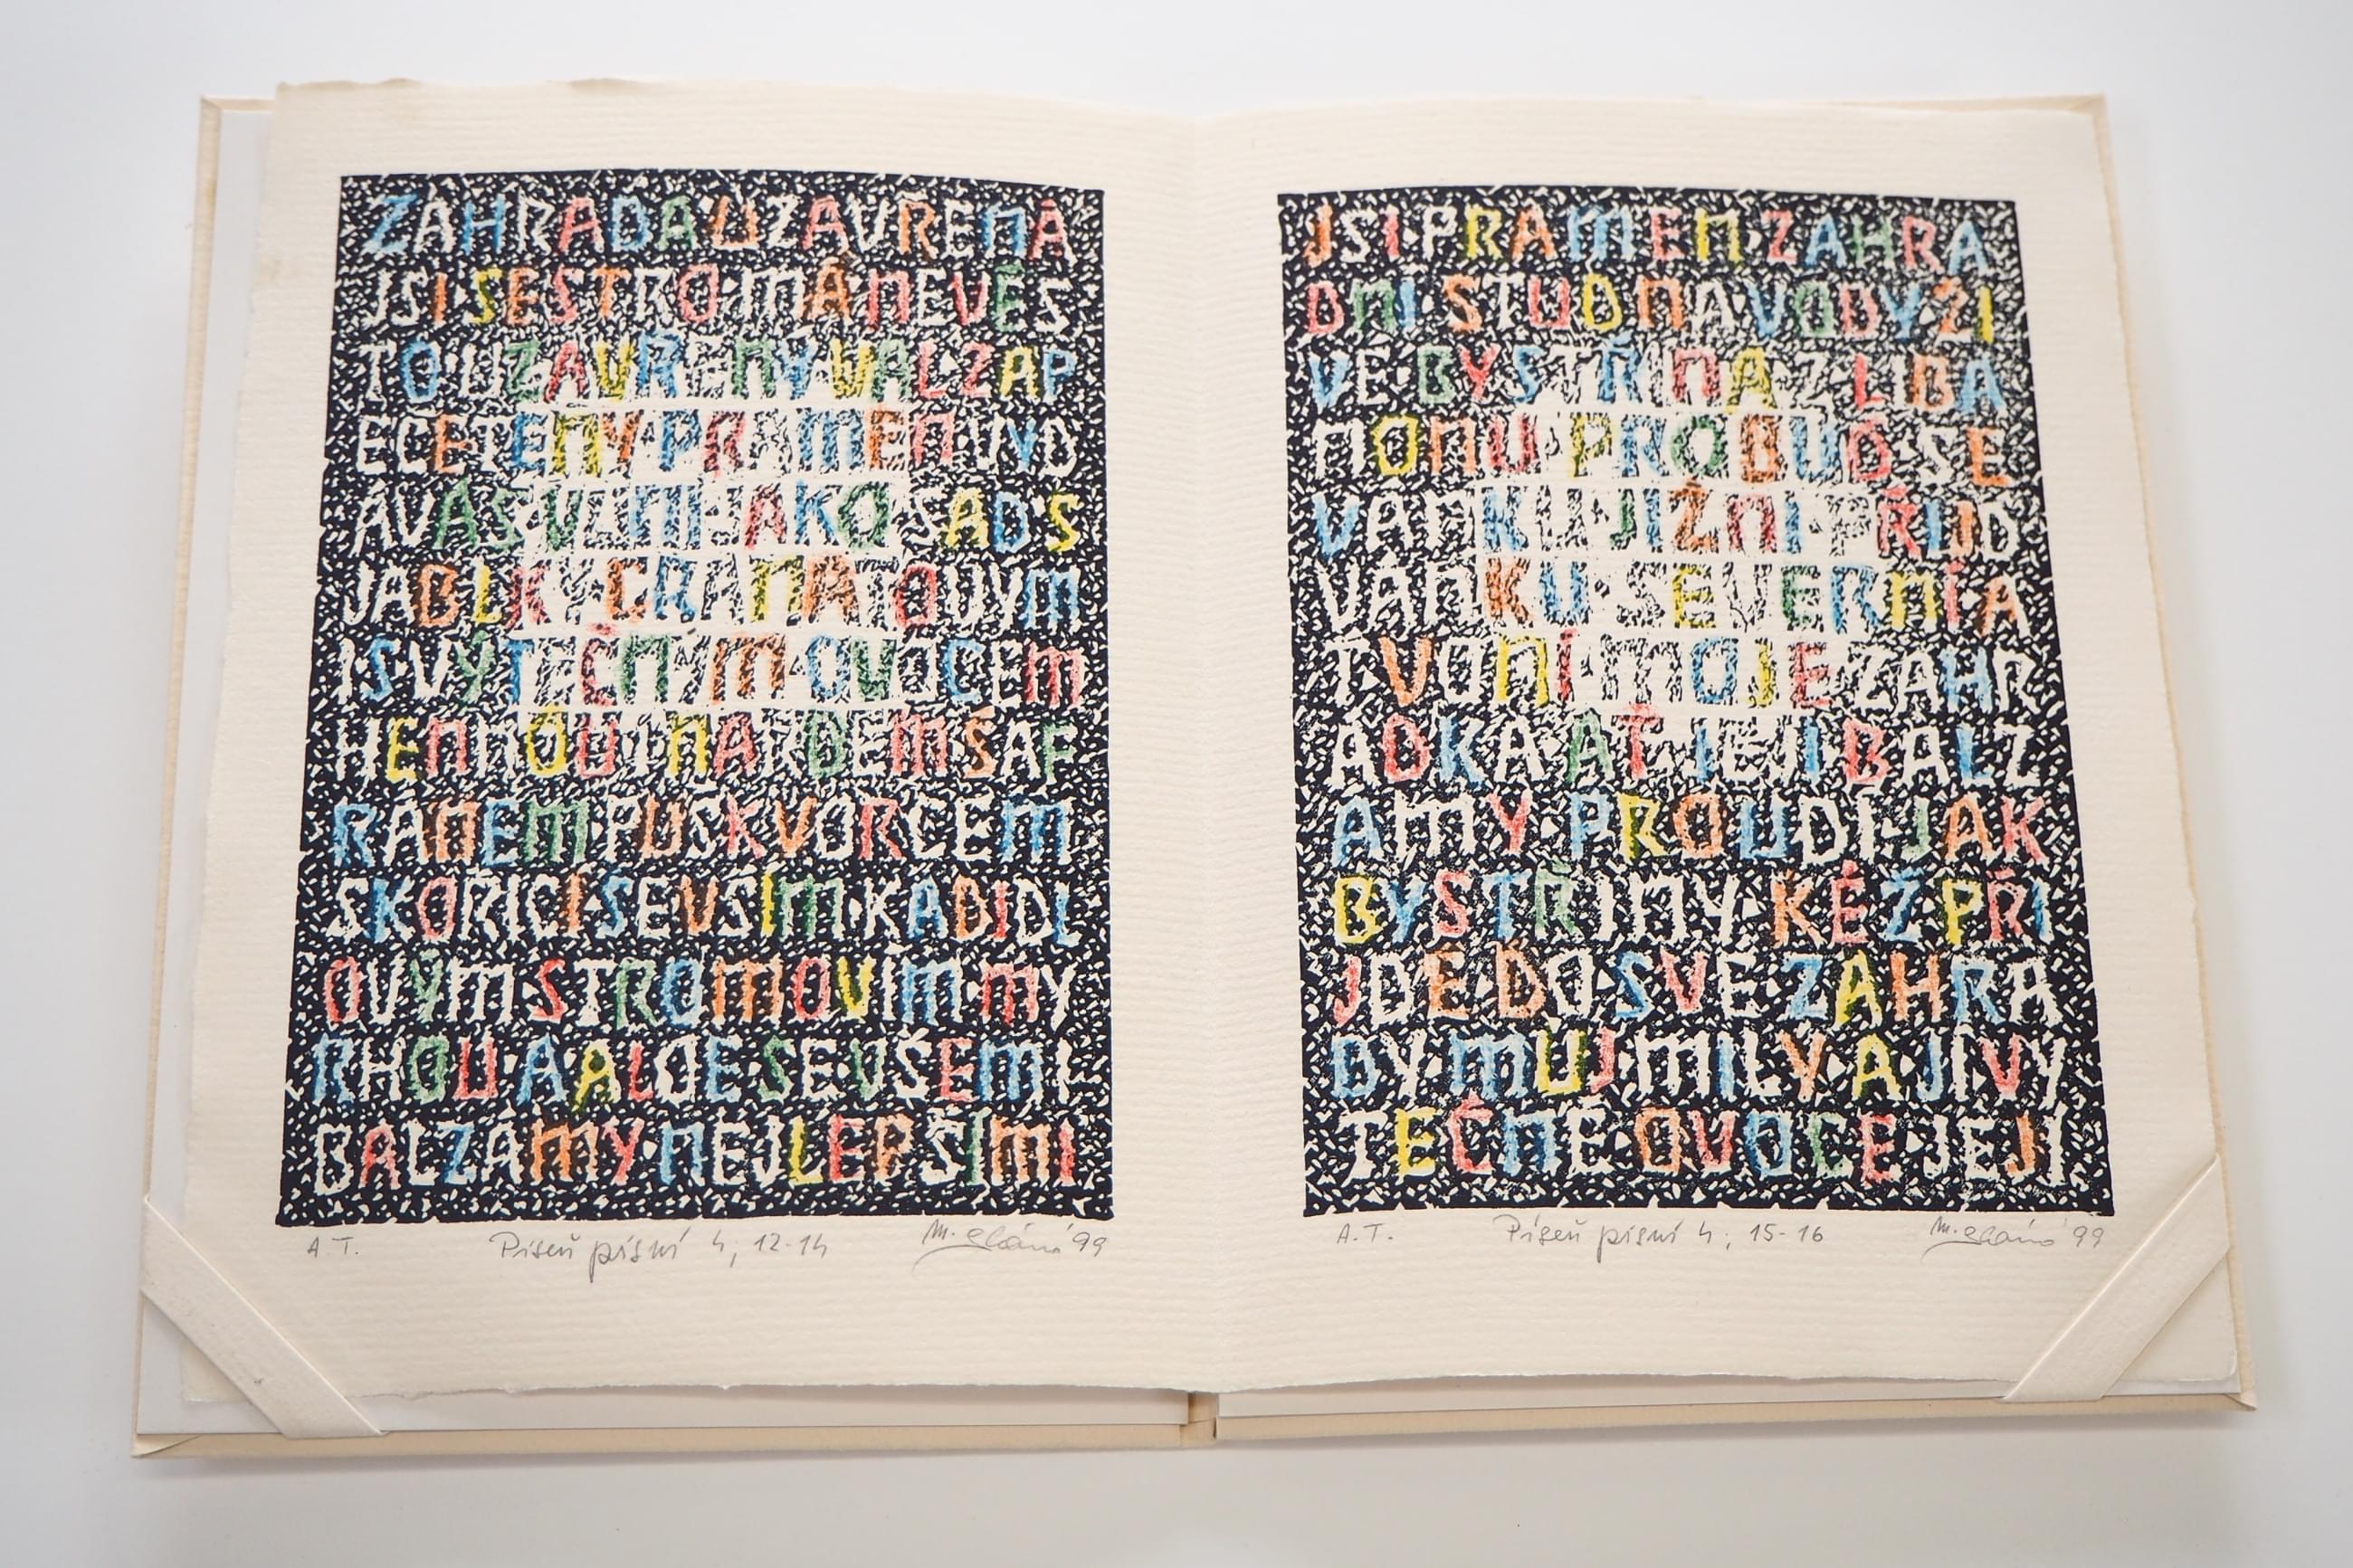 ZAHRADA UZAVŘENÁ
JSI SESTRO MÁ NEVĚS
TO UZAVŘENÝ VAL ZAP
EČETĚNÝ PRAMEN VYD
ÁVÁŠ VŮNI JAKO SAD S
JABLKY GRANÁTOVÝM
I S VÝTEČNÝM OVOCEM
HENNOU I NARDEM ŠAF
RÁNEM PUŠKVORCEM
SKOŘICÍ SE VŠÍM KADIDL
OVÝM STROMOVÍM MY
RHOU A ALOE SE VŠEMI
BALZÁMY NEJLEPŠÍMI
A.T. Píseň písní 4, 12-14 '99
JSI PRAMEN ZAHRA
DNÍ STUDNA VODY ŽI
VÉ BYSTŘINA Z LIBA
NONU PROBUĎ SE
VÁNKU JIŽNÍ PŘIJĎ
VÁNKU SEVERNÍ A
ŤVONÍ MOJE ZAHR
ÁDKA AŤ JEJÍ BALZ
ÁMY PROUDÍ JAK
BYSTŘINY KÉŽ PŘI
JDE DO SVÉ ZAHRA
DY MŮJ MILÝ A JÍ VÝ
TEČNÉ OVOCE JEJÍ
A.T. Píseň písní 4, 15-16 '99